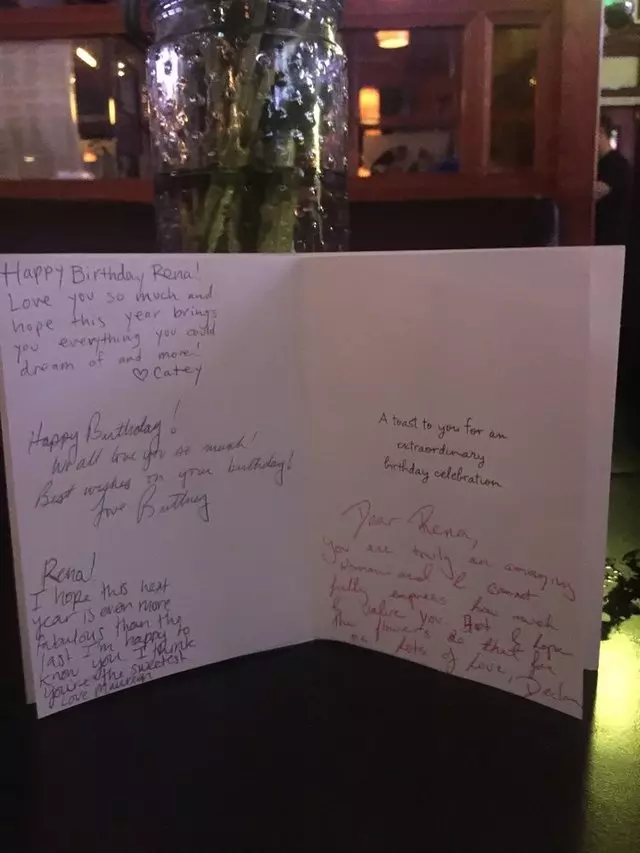 Happy Birthday Rena!
Love you so much and
hope this year brings
you everything you could
dream of and more!
♡ Catey
Happy Birthday!
We all love you so much!
Best wishes on your birthday!
Love Brittney
Rena!
I hope this next
year is even more
fabulous than the
last I'm happy to
know you I think
you're the sweetest
Love Maureen
A toast to you for an
extraordinary
birthday celebration
Dear Rena,
You are truly an amazing
woman and I cannot
fully express how much
I value you. I hope
the flowers do that for
me. Lots of Love,